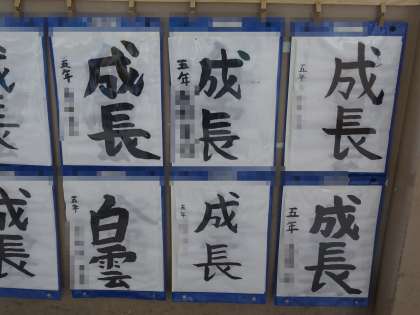 成長
五年
成長
五年
成長
五年
成長
成長
五年
白雲
五年
成長
五年
成長